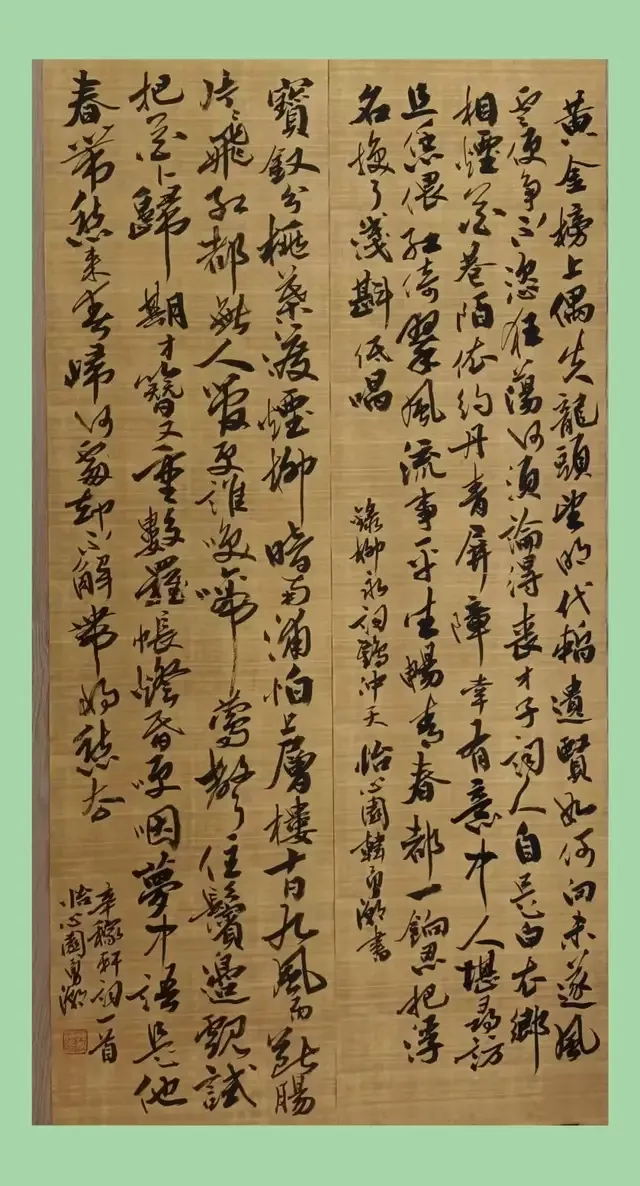 黃金榜上偶失龍頭望明代暫遺賢如何向未遂風
雲便爭不恣狂蕩何須論得喪才子詞人自是白衣卿
相煙花巷陌依約丹青屏障幸有意中人堪尋訪
且恁偎紅倚翠風流事平生暢青春都一餉忍把浮
名換了淺斟低唱
錄柳永詞鶴沖天 怡心園韓勇書
寶釵分桃葉渡煙柳暗南浦怕上層樓十日九風雨斷腸
片片飛紅都無人管更誰喚啼鶯聲住鬢邊覷試
把花卜歸期才簪又重數羅帳燈昏哽咽夢中語是他
春帶愁來春歸何處却不解帶將愁去
辛稼軒詞一首
怡心園勇